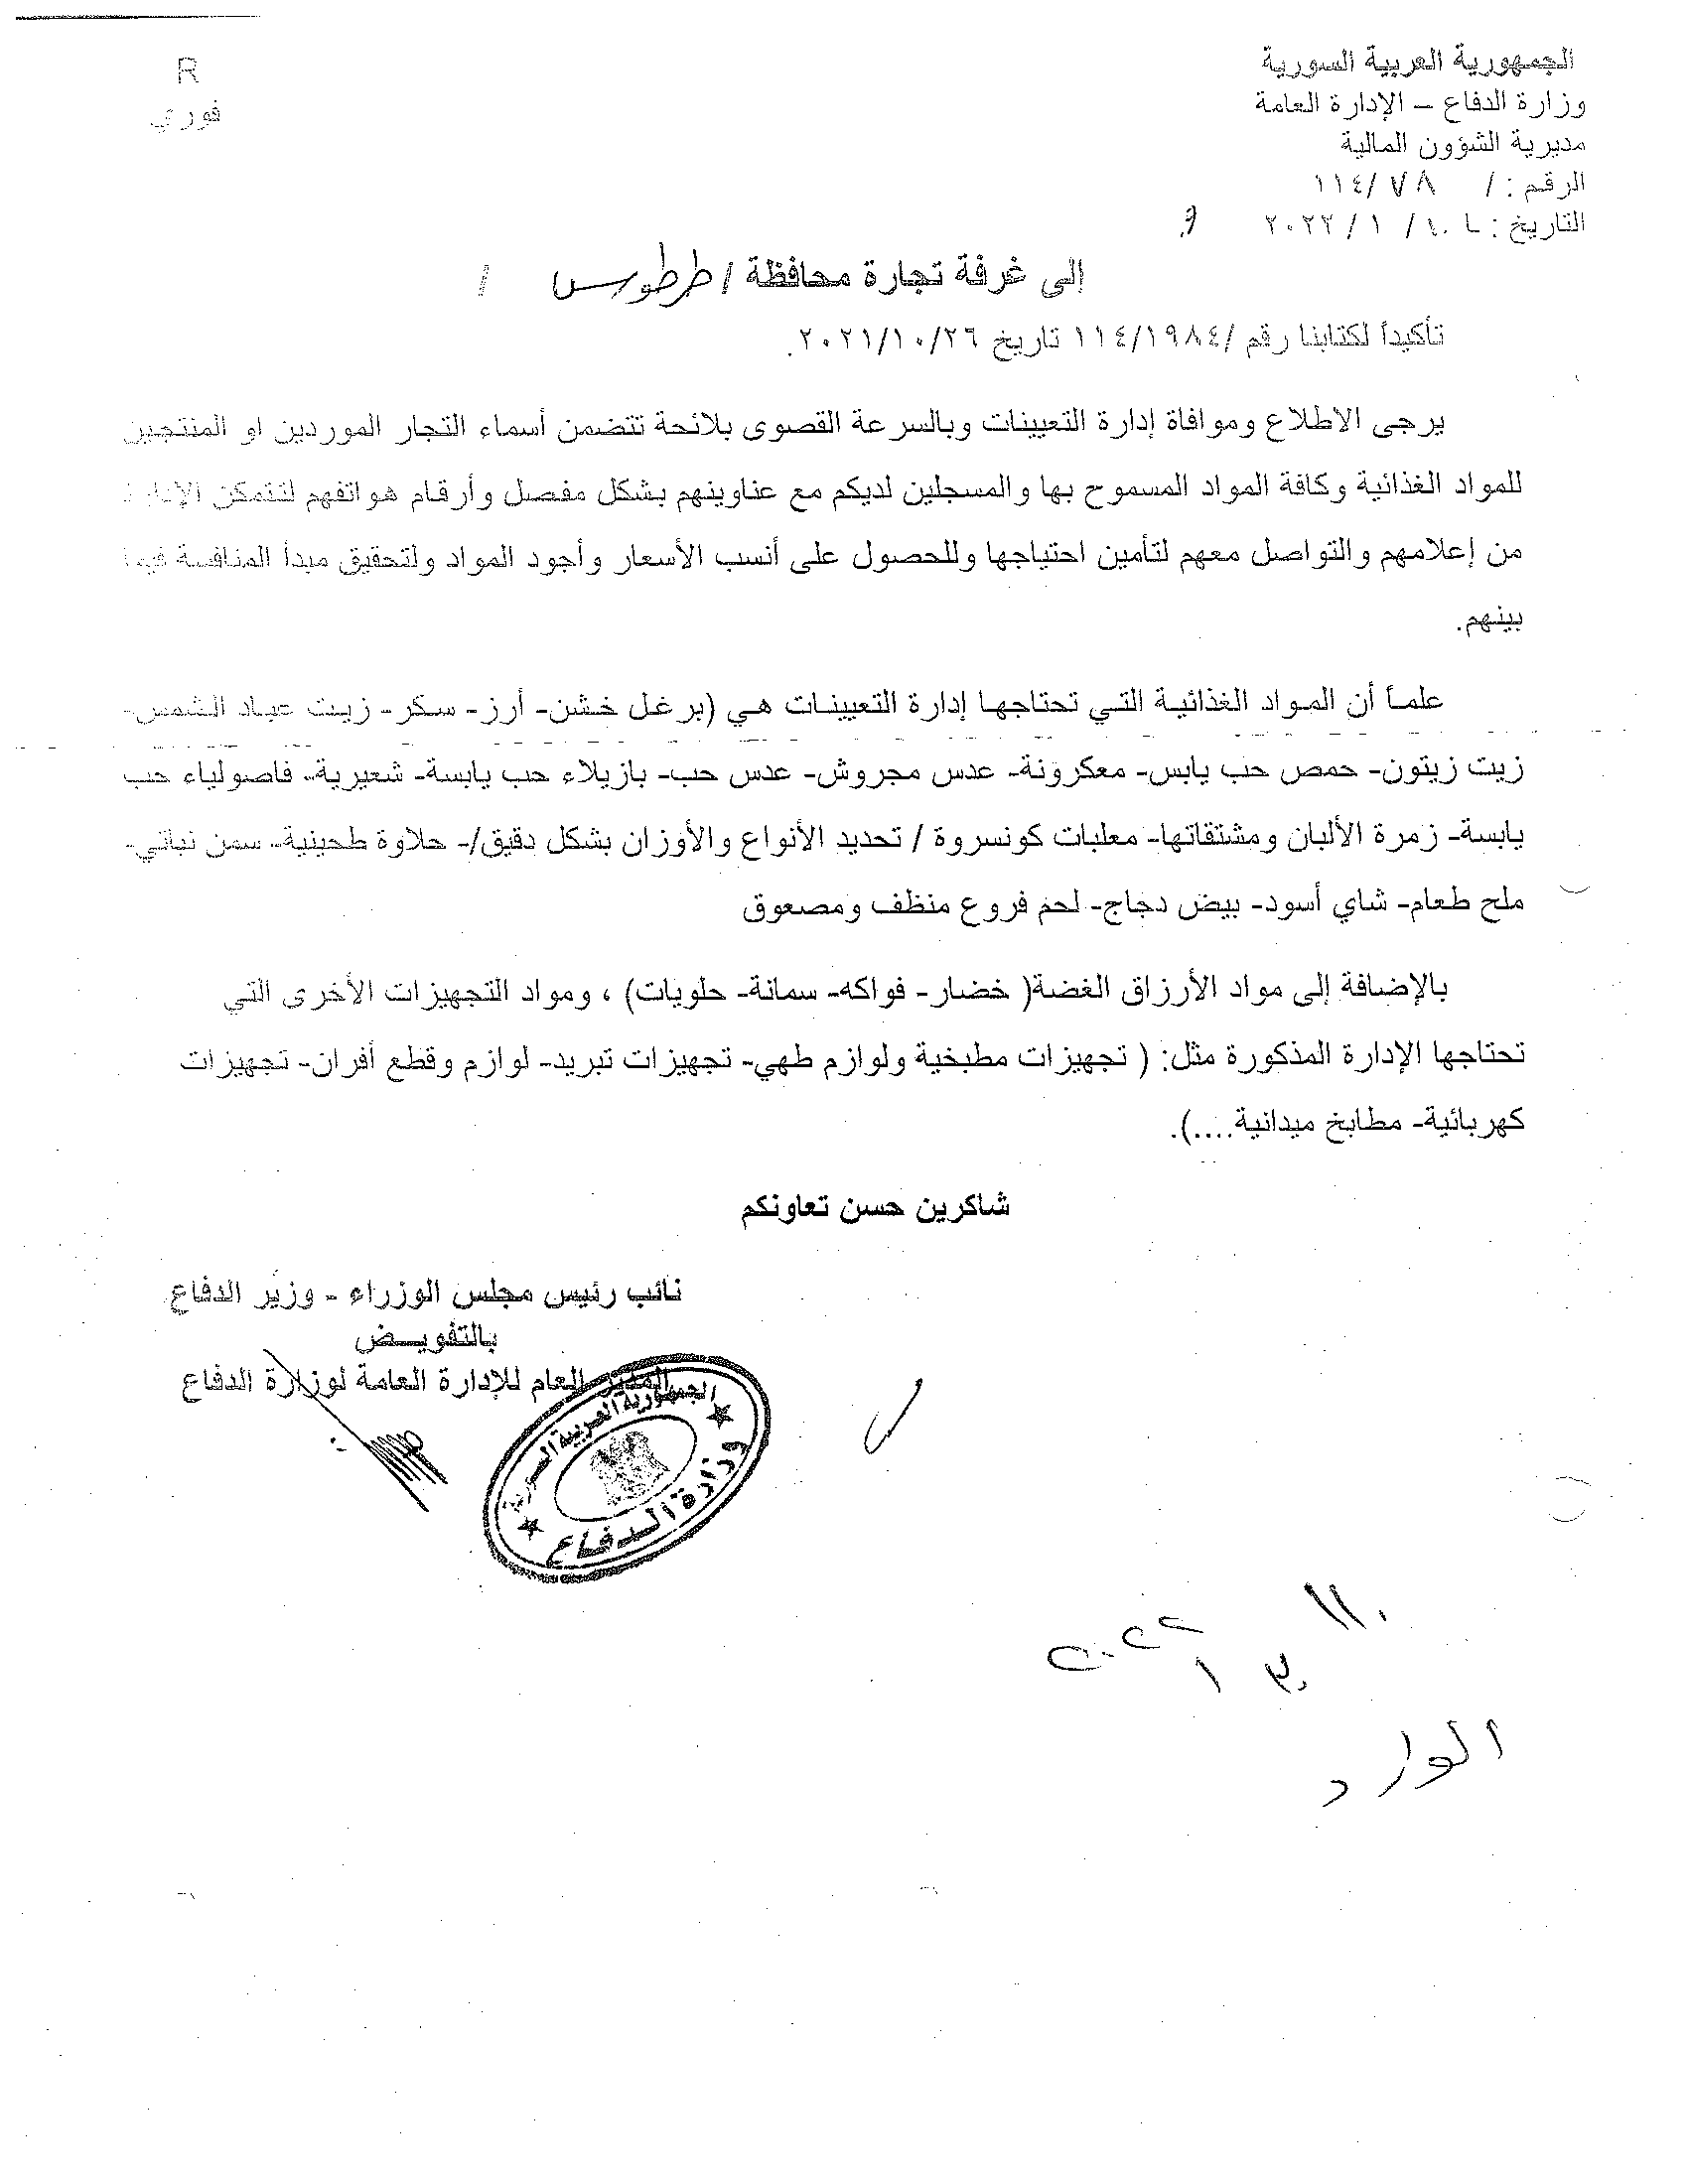 الجمهورية العربية السورية
وزارة الدفاع – الإدارة العامة
مديرية الشؤون المالية
الرقم : / ١١٤/٧٨
التاريخ : / ١ / ٢٠٢٢
R
فوري
إلى غرفة تجارة محافظة / طرطوس /
تأكيداً لكتابنا رقم /١١٤/١٩٨٤ تاريخ ٢٠٢١/١٠/٢٦.
يرجى الاطلاع وموافاة إدارة التعيينات وبالسرعة القصوى بلائحة تتضمن أسماء التجار الموردين او المنتجين
للمواد الغذائية وكافة المواد المسموح بها والمسجلين لديكم مع عناوينهم بشكل مفصل وأرقام هواتفهم لتتمكن الإدارة
من إعلامهم والتواصل معهم لتأمين احتياجها وللحصول على أنسب الأسعار وأجود المواد ولتحقيق مبدأ المنافسة فيما
بينهم.
علماً أن المواد الغذائية التي تحتاجها إدارة التعيينات هي (برغل خشن- أرز- سكر- زيت عباد الشمس-
زيت زيتون- حمص حب يابس- معكرونة- عدس مجروش- عدس حب- بازيلاء حب يابسة- شعيرية- فاصولياء حب
يابسة- زمرة الألبان ومشتقاتها- معلبات كونسروة / تحديد الأنواع والأوزان بشكل دقيق/- حلاوة طحينية- سمن نباتي-
ملح طعام- شاي أسود- بيض دجاج- لحم فروج منظف ومصعوق
بالإضافة إلى مواد الأرزاق الغضة( خضار- فواكه- سمانة- حلويات) ، ومواد التجهيزات الأخرى التي
تحتاجها الإدارة المذكورة مثل: ( تجهيزات مطبخية ولوازم طهي- تجهيزات تبريد- لوازم وقطع أفران- تجهيزات
كهربائية- مطابخ ميدانية....).
شاكرين حسن تعاونكم
نائب رئيس مجلس الوزراء - وزير الدفاع
بالتفويض
المدير العام للإدارة العامة لوزارة الدفاع
الجمهورية العربية السورية
وزارة الدفاع
١١٠
٣٠ ١ ٢٠٢٢
الوارد